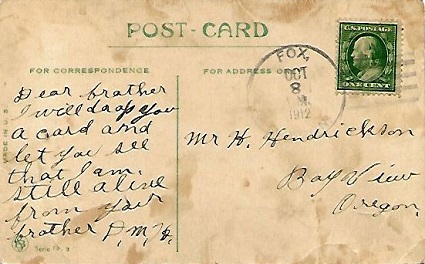 POST-CARD
FOR CORRESPONDENCE
FOR ADDRESS
FOX,
OCT
8
M.
1912
U.S. POSTAGE
ONE CENT
MADE IN U.S.
Dear brother
I will drop you
a card and
let you see
that I am
still alive
from your
brother D.M.H.
Mr H. Hendrickson
Bay View
Oregon.
Serie No.